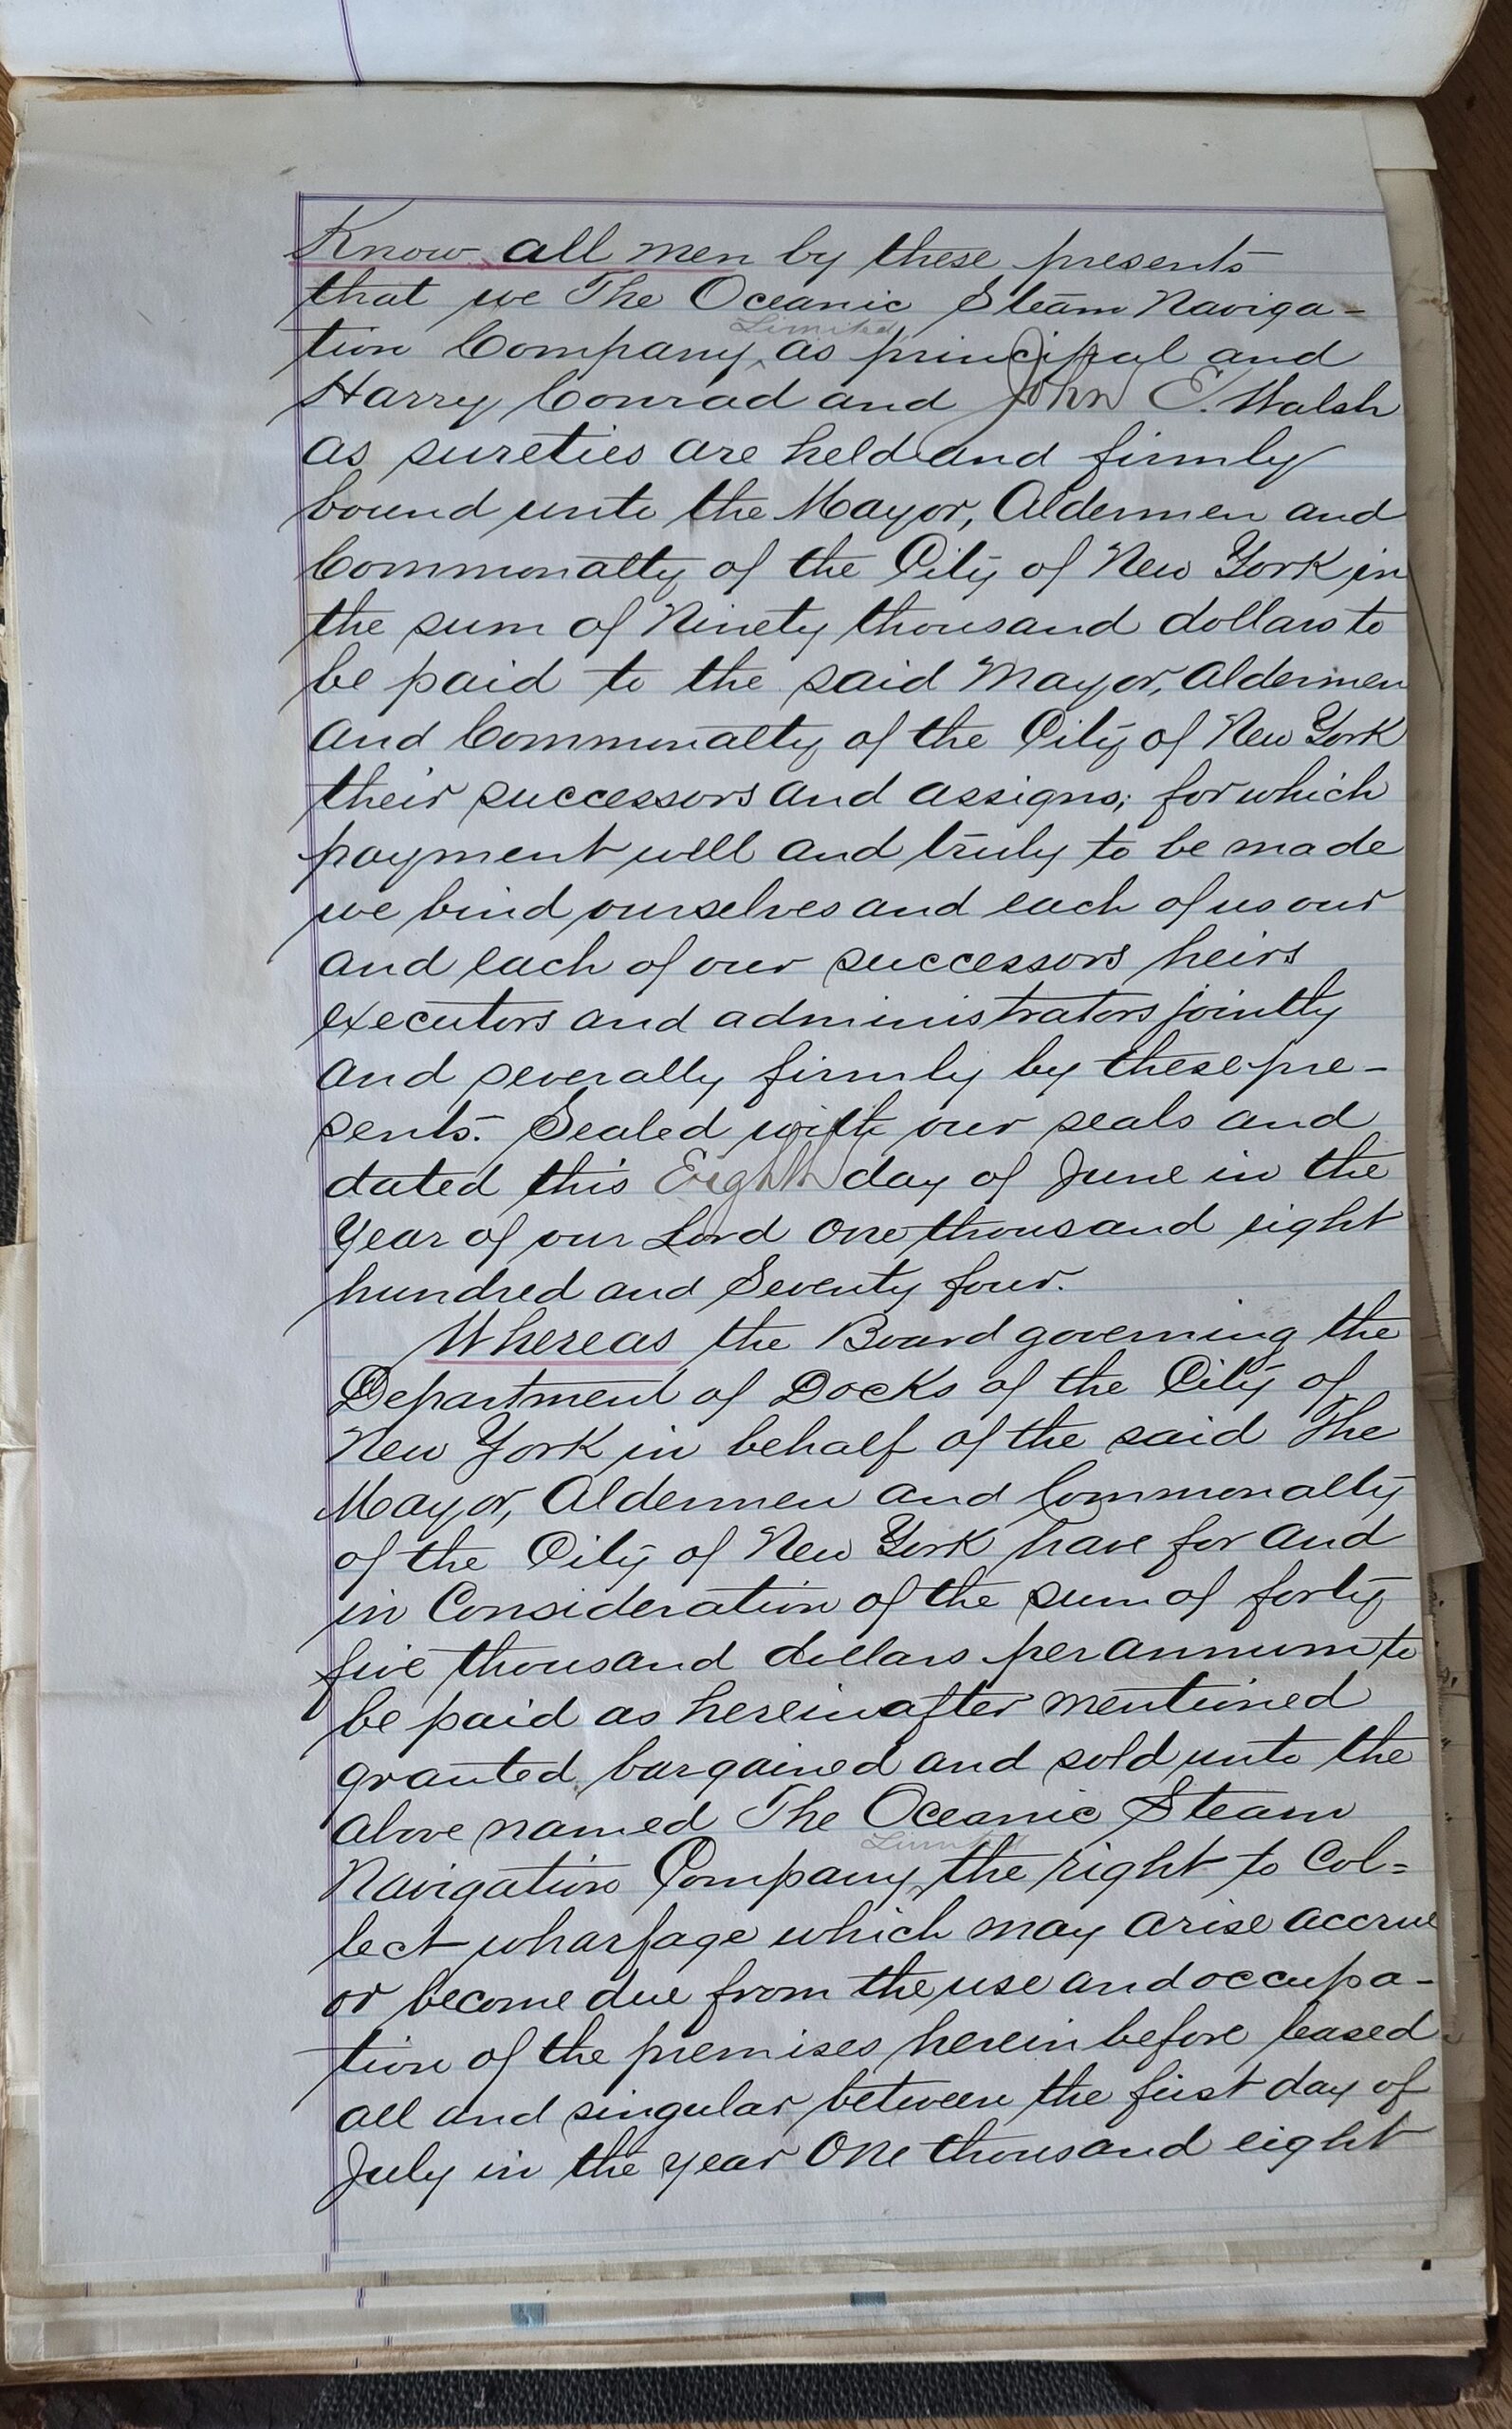 Know all men by these presents
that we The Oceanic Steam Naviga-
Limited
tion Company, ^ as principal and
Harry Conrad and John E. Walsh
as sureties are held and firmly
bound unto the Mayor, Aldermen and
Commonalty of the City of New York in
the sum of Ninety thousand dollars to
be paid to the said Mayor, Aldermen
and Commonalty of the City of New York
their successors and assigns; for which
payment well and truly to be made
we bind ourselves and each of us our
and each of our successors heirs
executors and administrators jointly
and severally firmly by these pre-
sents. Sealed with our seals and
dated this Eighth day of June in the
Year of our Lord One thousand eight
hundred and Seventy four.
Whereas the Board governing the
Department of Docks of the City of
New York in behalf of the said The
Mayor, Aldermen and Commonalty
of the City of New York have for and
in Consideration of the sum of forty
five thousand dollars per annum to
be paid as hereinafter mentioned
granted bargained and sold unto the
above named The Oceanic Steam
Limited
Navigation Company, ^ the right to Col=
lect wharfage which may arise accrue
or become due from the use and occupa-
tion of the premises herein before leased
all and singular between the first day of
July in the year One thousand eight